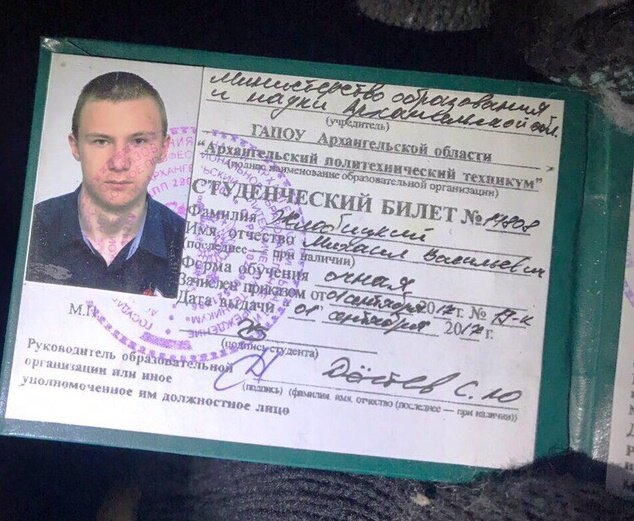 Министерство образования
и науки Архангельской обл.
(учредитель)
ГАПОУ Архангельской области
"Архангельский политехнический техникум"
(полное наименование образовательной организации)
СТУДЕНЧЕСКИЙ БИЛЕТ № 17808
Фамилия Жлобицкий
Имя, отчество Михаил Васильевич
(последнее — при наличии)
Форма обучения очная
Зачислен приказом от 01 сентября 2017 г. № 19-к
Дата выдачи 01 сентября 2017 г.
(подпись студента)
М.П.
Руководитель образовательной
организации или иное
уполномоченное им должностное лицо
С. Ю
(подпись) (фамилия, имя, отчество (последнее — при наличии))